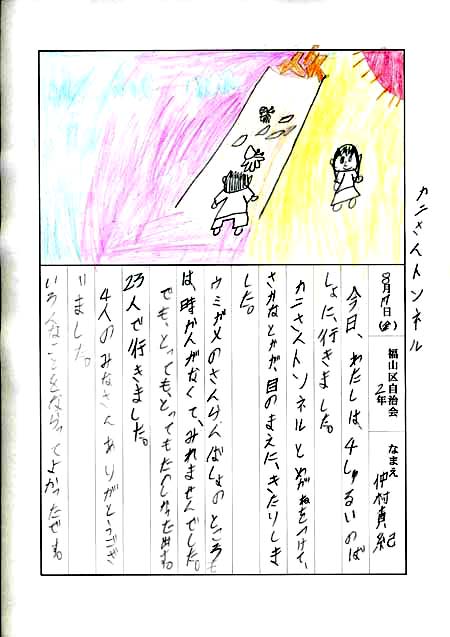 カニさんトンネル
8月17日(金)
福山区自治会
2年
なまえ 仲村真紀
今日、わたしは、4しゅるいのば
しょに、行きました。
カニさんトンネルとめがねをつけて、
さかなとかが、目のまえに、きたりしま
した。
ウミガメのさんらんばしょのところも
は、時かんがなくて、みれませんでした。
でも、とっても、とってもたのしかったです。
23人で行きました。
4人のみなさんありがとうござ
いました。
いろんなことをならってよかったです。